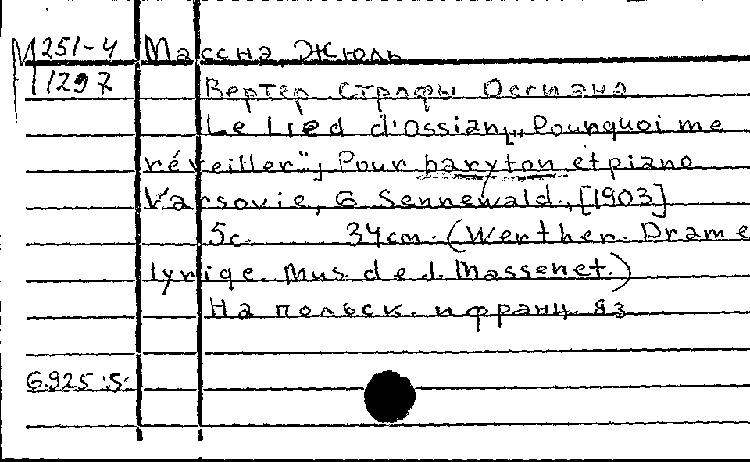 М251-4 Массна, Жюль
1297 Вертер Строфы Оссиана
Le Lied d'Ossian, "Pourquoi me
réveiller", Pour baryton et piano
Varsovie, G. Sennewald, [1903]
5с. 34cm. (Werther. Drame
lyriqe. Mus. de J. Massenet.)
На польск. и франц. яз
6.925.5.